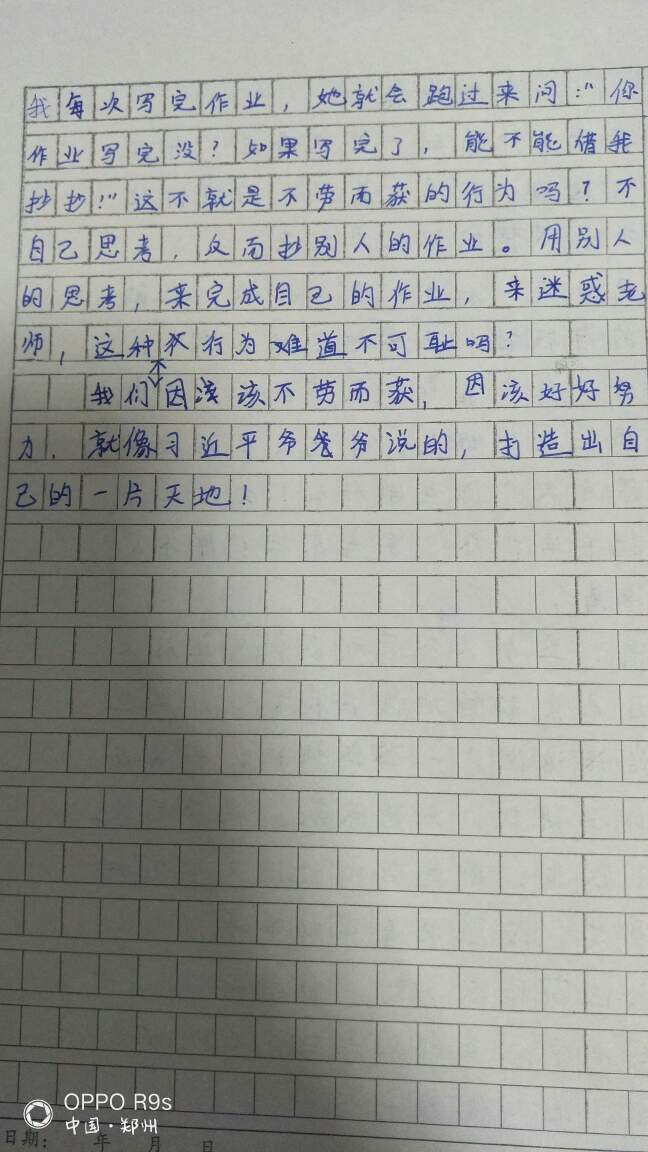 我每次写完作业，她就会跑过来问："你
作业写完没？如果写完了，能不能借我
抄抄！"这不就是不劳而获的行为吗？不
自己思考，反而抄别人的作业。用别人
的思考，来完成自己的作业，来迷惑老
师，这种行为难道不可耻吗？
不
我们因该不劳而获，因该好好努
力．就像习近平爷爷说的，打造出自
己的一片天地！
OPPO R9s
中国·郑州
日期： 年 月 日